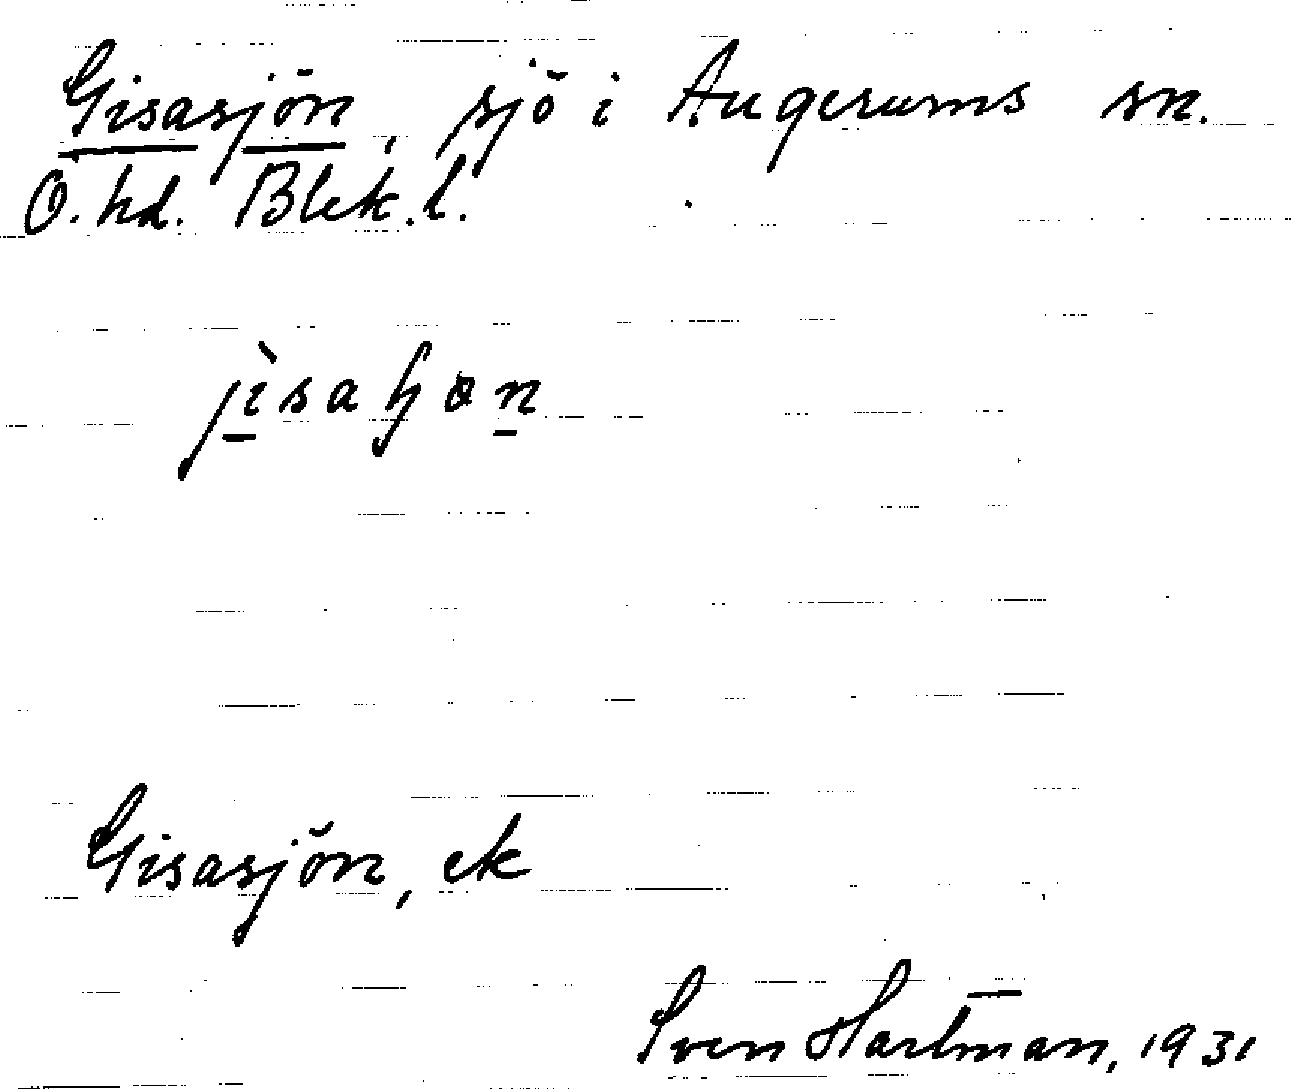 Gisasjön, sjö i Augerums sn.
Ö. hd. Blek. l.
jìsaɧɵn
Gisasjön, ek
Sven Hartman, 1931